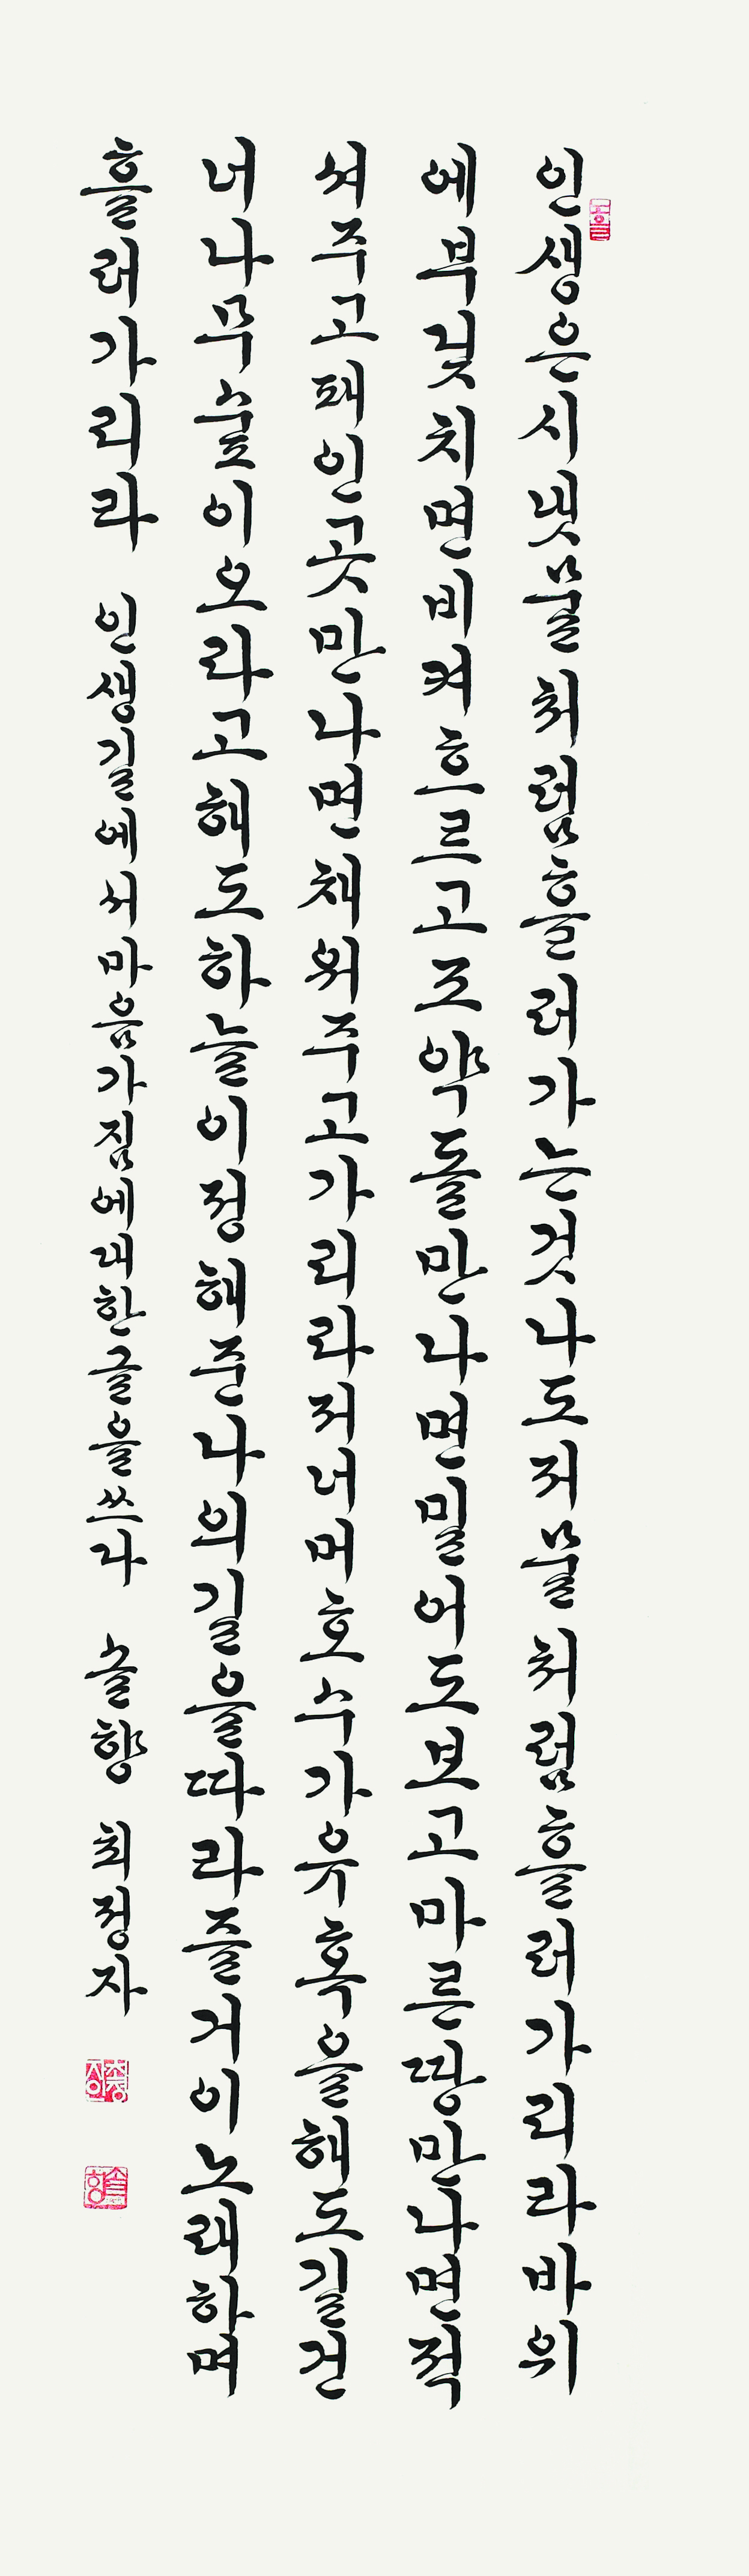 인생은시냇물처럼흘러가는것나도저물처럼흘러가리라바위
에부딪치면비켜흐르고조약돌만나면밀어도보고마른땅만나면적
셔주고패인곳만나면채워주고가리라저너머호수가유혹을해도길건
너나무숲이오라고해도하늘이정해준나의길을따라즐거이노래하며
흘러가리라 인생길에서마음가짐에대한글을쓰다 솔향 최정자